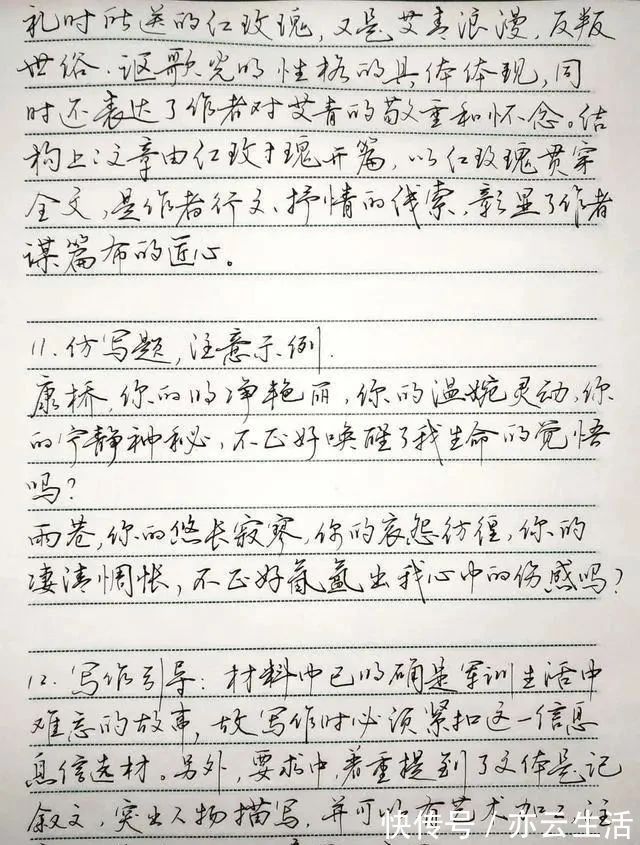 礼时所送的红玫瑰，又是艾青浪漫，反叛
世俗、讴歌光明性格的具体体现，同
时还表达了作者对艾青的敬重和怀念。结
构上：文章由红玫瑰开篇，以红玫瑰贯穿
全文，是作者行文、抒情的线索，彰显了作者
谋篇布的匠心。
11.仿写题，注意示例.
康桥，你的明净艳丽，你的温婉灵动，你
的宁静神秘，不正好唤醒了我生命的觉悟
吗？
雨巷，你的悠长寂寥，你的哀怨彷徨，你的
凄清惆怅，不正好氤氲出我心中的伤感吗？
12.写作引导：材料中已明确是军训生活中
难忘的故事，故写作时必须紧扣这一信息
息信选材。另外，要求中，着重提到了文体是记
叙文，突出人物描写，并可以有艺术加工，注
快传号／亦云生活